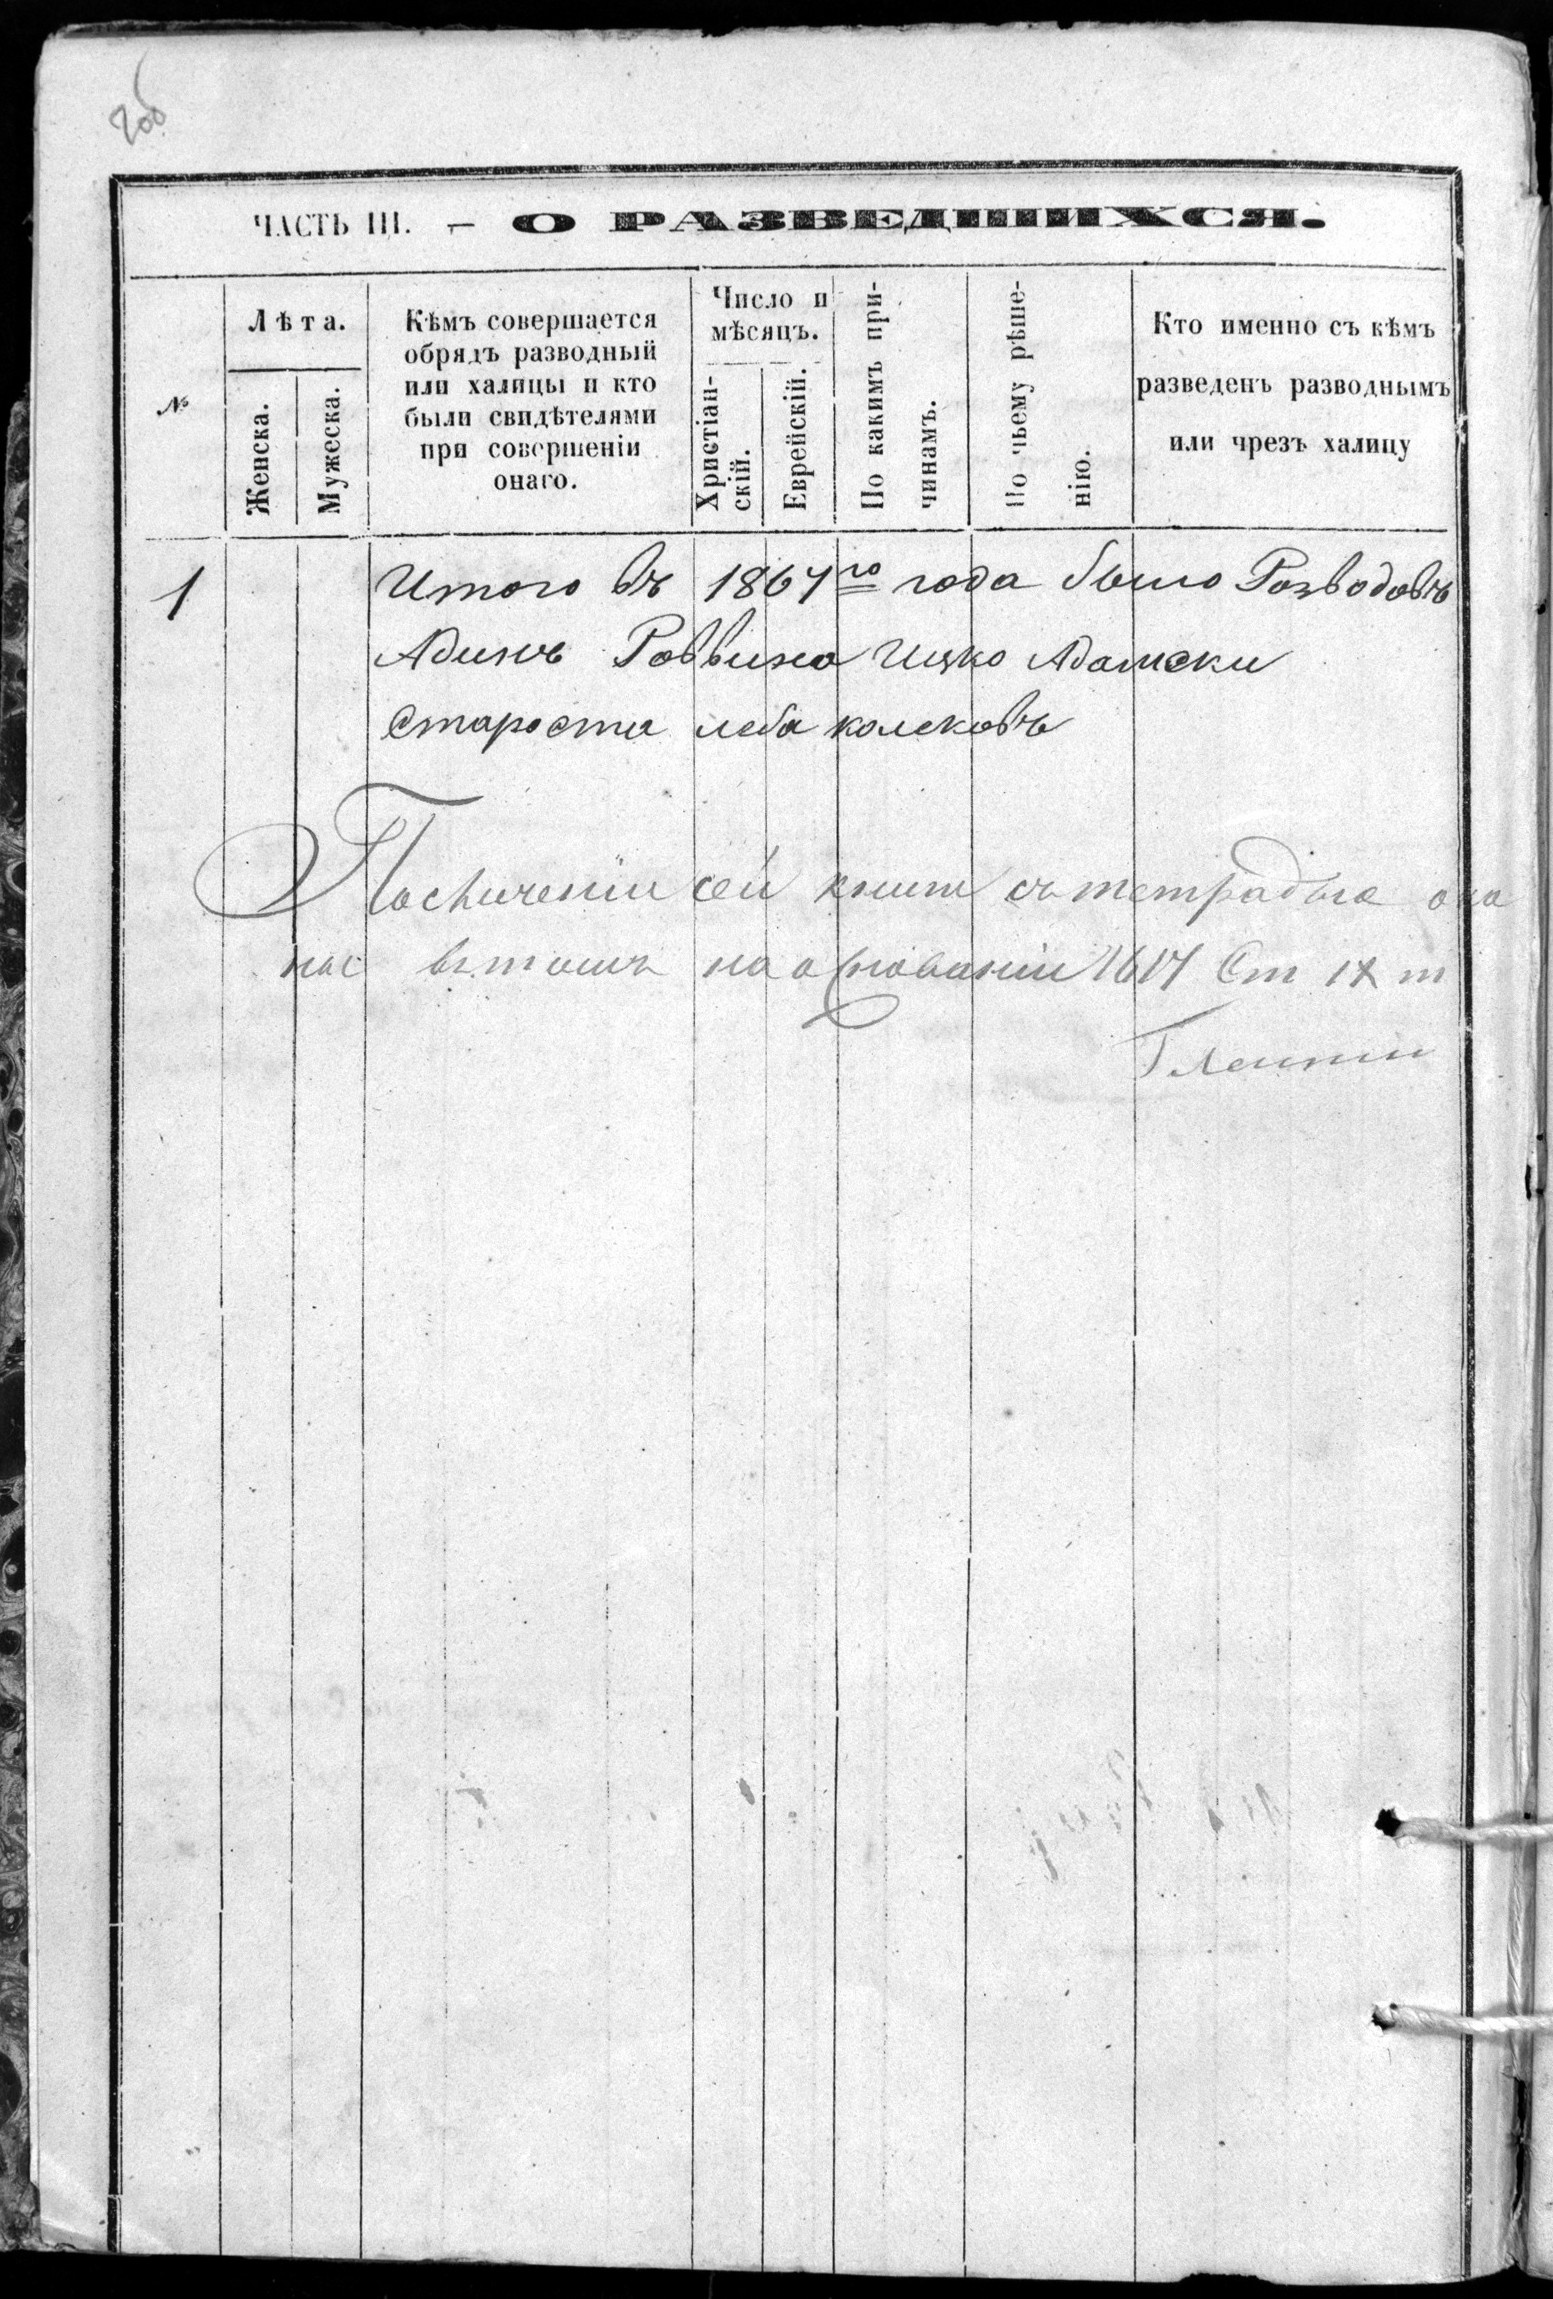 ЧАСТЬ III. — О РАЗВЕДШИХСЯ.
№
Лѣта.
Женска.
Мужеска.
Кѣмъ совершается
обрядъ разводный
или халицы и кто
были свидѣтелями
при совершеніи
онаго.
Число и
мѣсяцъ.
Христіан-
скій.
Еврейскій.
По какимъ при-
чинамъ.
По чьему рѣше-
нію.
Кто именно съ кѣмъ
разведенъ разводнымъ
или чрезъ халицу
1
Итого въ 1867го года было Розводовъ
Адинъ Раввина Ицко Адамски
Староста леба колековъ
сей книги съ тетрадью ока
на основаніи 1617 Ст IX т